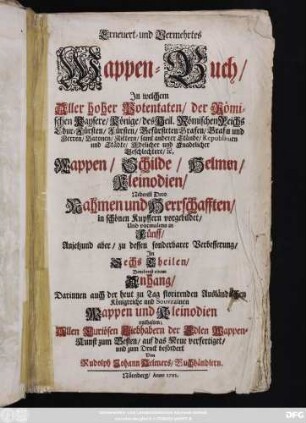 Erneuert- und Vermehrtes
Wappen-Buch/
In welchem
Aller hoher Potentaten/ der Römi-
schen Kaysere/ Könige/ des Heil. Römischen Reichs
Chur-Fürsten/ Fürsten/ Gefürsteten Grafen/ Grafn und
Herren/ Baronen/ Rittern/ samt anderer Stände/ Republiquen
und Städte/ Adelicher und Unadelicher
Geschlechter/ &c.
Wappen/ Schilde/ Helmen/
Kleinodien/
Nebenst Dero
Nahmen und Herrschafften/
in schönen Kupffern vorgebildet/
Und vormalens in
Fünff/
Anjetzund aber/ zu dessen sonderbarer Verbesserung/
In
Sechs Theilen/
Benebenst einem
Anhang/
Darinnen auch der heut zu Tag florirenden Ausländischen
Königreiche und Souverainen
Wappen und Kleinodien
enthalten;
Allen Curiösen Liebhabern der Edlen Wappen-
Kunst zum Besten/ auf das Neue verfertiget/
und zum Druck befördert
Von
Rudolph Johann Helmers/ Buchhändlern.
Nürnberg/ Anno